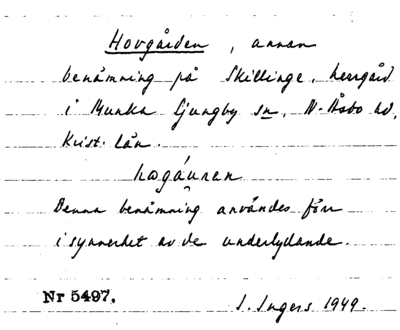 Hovgården, annan
benämning på Skillinge, herrgård
i Munka Ljungby sn, N. Åsbo hd,
Krist. län.
hogáuren
Denna benämning användes förr
i synnerhet av de underlydande.
Nr 5497.
I. Ingers 1949.